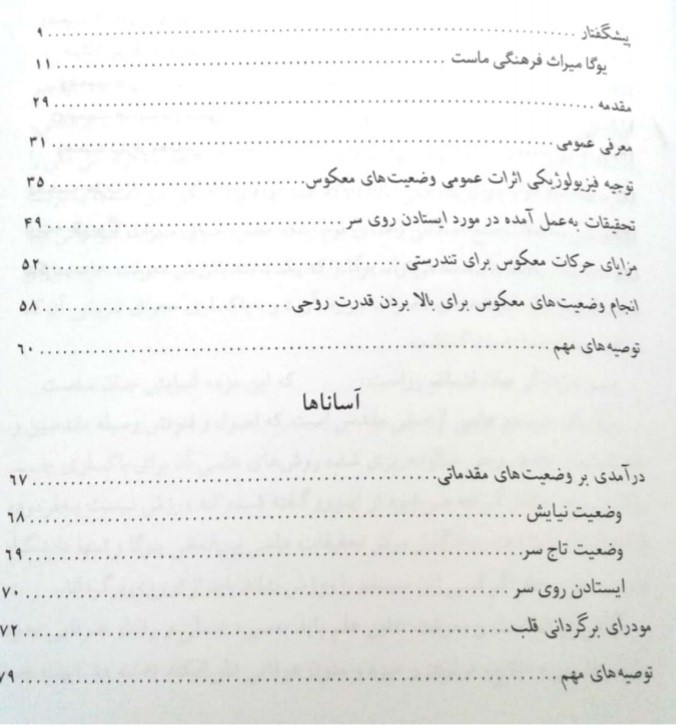 پیشگفتار ........ ۹
یوگا میراث فرهنگی ماست ........ ۱۱
مقدمه ........ ۲۹
معرفی عمومی ........ ۳۱
توجیه فیزیولوژیکی اثرات عمومی وضعیت‌های معکوس ........ ۳۵
تحقیقات به‌عمل آمده در مورد ایستادن روی سر ........ ۴۹
مزایای حرکات معکوس برای تندرستی ........ ۵۲
انجام وضعیت‌های معکوس برای بالا بردن قدرت روحی ........ ۵۸
توصیه‌های مهم ........ ۶۰
آساناها
درآمدی بر وضعیت‌های مقدماتی ........ ۶۷
وضعیت نیایش ........ ۶۸
وضعیت تاج سر ........ ۶۹
ایستادن روی سر ........ ۷۰
مودرای برگردانی قلب ........ ۷۲
توصیه‌های مهم ........ ۷۹